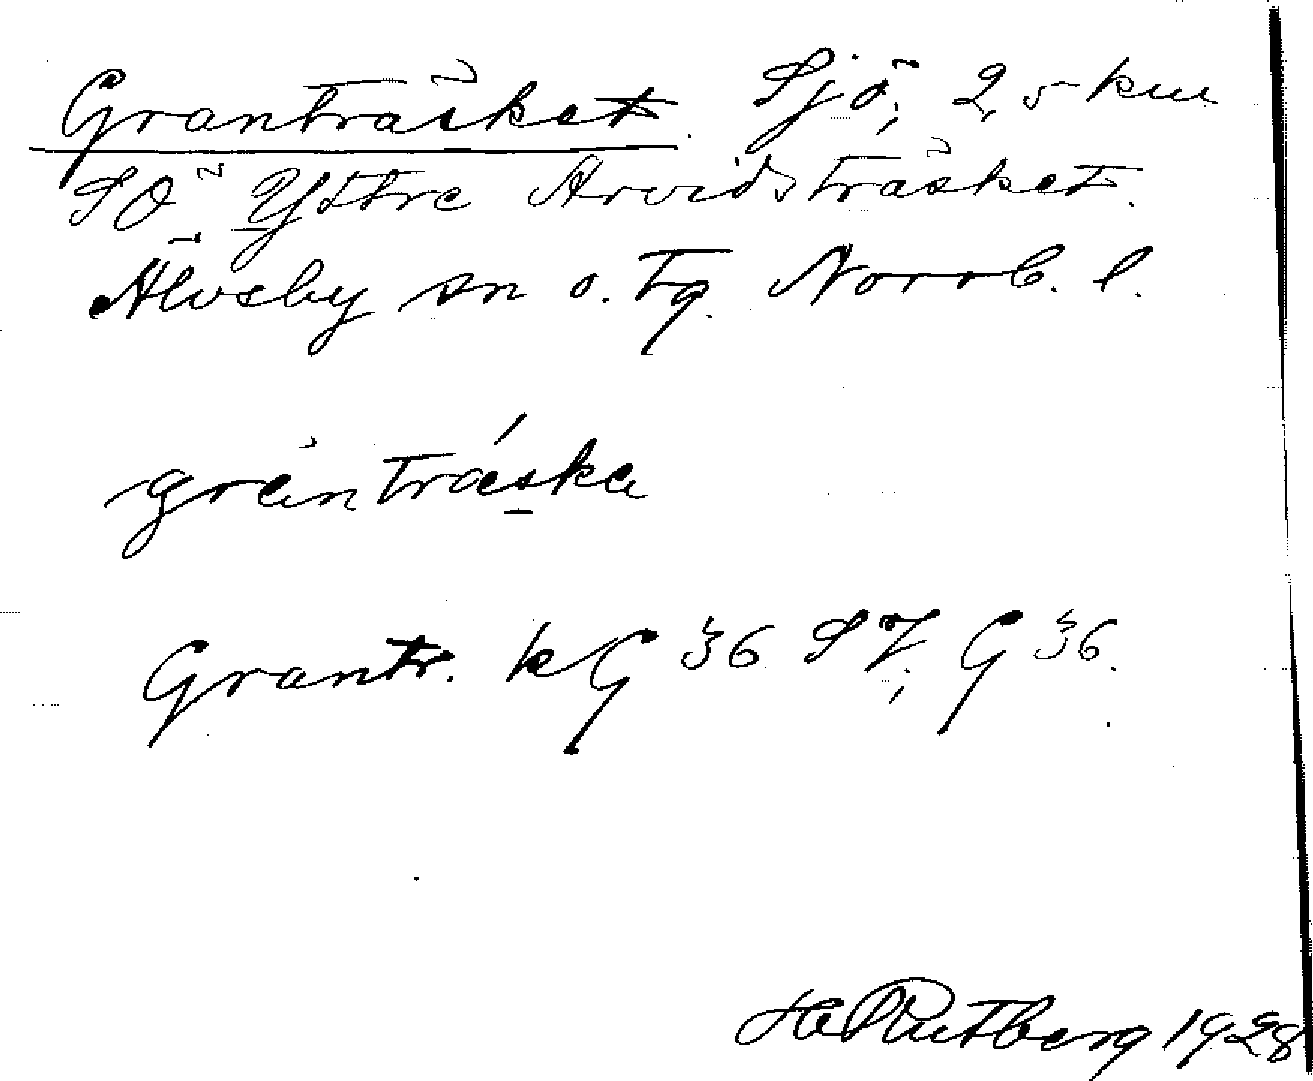 Granträsket. Sjö, 2,5 km
SÖ Yttre Arvidsträsket.
Älvsby sn o. tg. Norrb. l.
gràntrǽska
Grantr. kG 36 SV; G 36.
H Rutberg 1928